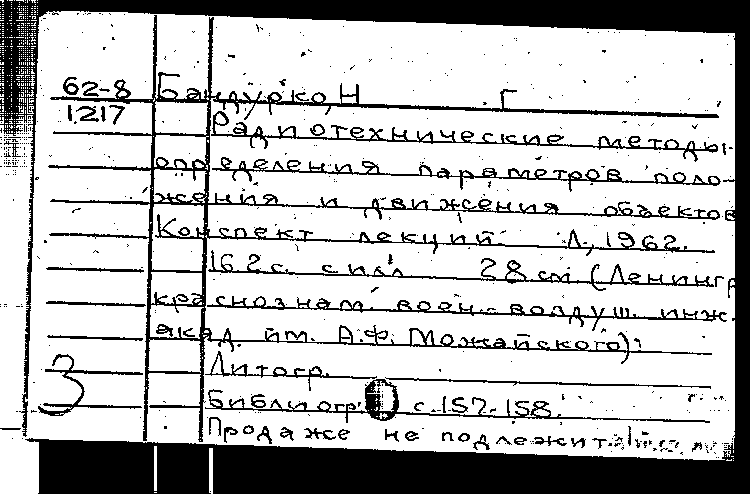 62-8 Бандурко, Н Г
1217 Радиотехнические методы
определения параметров поло-
жения и движения объектов
Конспект лекций. Л., 1962.
162 с. с илл 28 см (Ленингр
краснознам. воен.-воздуш. инж.
акад. им. А.Ф. Можайского).
Литогр.
3
Библиогр. с. 157-158.
Продаже не подлежит.